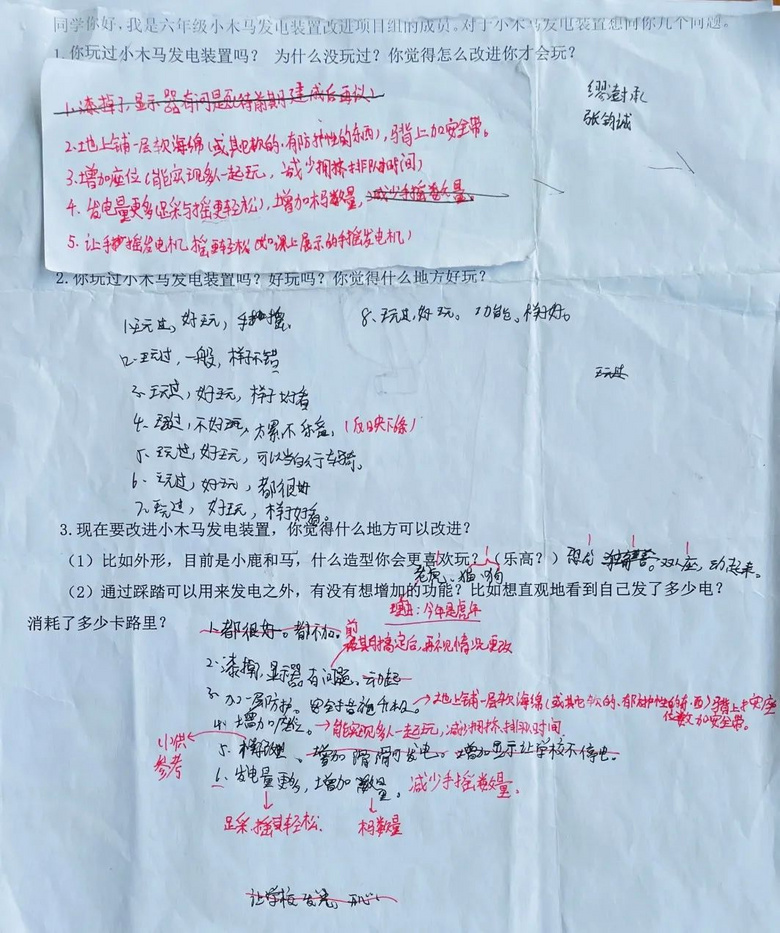 同学你好,我是六年级小木马发电装置改进项目组的成员。对于小木马发电装置想问你几个问题。
1.你玩过小木马发电装置吗? 为什么没玩过?你觉得怎么改进你才会玩?
缪澍承
张钧诚
1.漆掉了,显示器有问题(待前期建成后再议)
2.地上铺一层软海绵(或其它软的、有防护性的东西),马背上加安全带。
3.增加座位(能实现多人一起玩,减少拥挤、排队时间)
4.发电量更多(足踩与摇更轻松),增加木马数量,减少手摇数量
5.让手摇发电机摇更轻松(如课上展示的手摇发电机)
2.你玩过小木马发电装置吗?好玩吗?你觉得什么地方好玩?
1.玩过,好玩,手摇
8、玩过,好玩。功能、样子好。
2.玩过,一般,样子不错
玩过
3.玩过,好玩,样子好看
4.玩过,不好玩,太累不乐意,(反映下条)
5.玩过,好玩,可以当自行车骑。
6、玩过,好玩,都很好
7.玩过,好玩,样子好看。
3.现在要改进小木马发电装置,你觉得什么地方可以改进?
(1)比如外形,目前是小鹿和马,什么造型你会更喜欢玩?(乐高?) 双人座,动起来。
老虎、猫、狗
(2)通过踩踏可以用来发电之外,有没有想增加的功能?比如想直观地看到自己发了多少电?
理由:今年是虎年
消耗了多少卡路里?
1.都很好。都不加。
前期搞定后,再视情况更改
2.漆掉,显示器有问题、动起
3.加一层防护。安全措施升级。→地上铺一层软海绵(或其它软的、有防护性的东西)马背上加安全带。
4.增加座位。→能实现多人一起玩,减少拥挤、排队时间
只供参考
5.样子改进、增加滑滑可发电。增加显示让学校不停电。
6.发电量更多,增加数量。减少手摇数量。
足踩、摇更轻松. 木马数量
让学校发光,开心